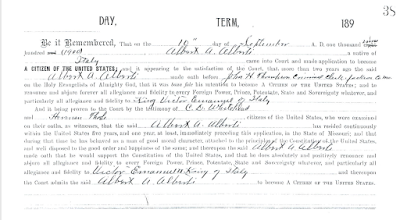 DAY, TERM, 189
38
Be it Remembered, That on the 10th day of September A. D. one thousand
hundred and Albert A. Alberti a native of
Italy came into Court and made application to become
A CITIZEN OF THE UNITED STATES; and it appearing to the satisfaction of the Court, that more than two years ago the said
Albert A. Alberti made oath before John H. Thompson Criminal Clerk Jackson
on the Holy Evangelists of Almighty God, that it was bona fide his intention to become A CITIZEN OF THE UNITED STATES; and to
renounce and abjure forever all allegiance and fidelity to every Foreign Power, Prince, Potentate, State and Sovereignty whatever, and
particularly all allegiance and fidelity to King Victor Emanuel of Italy
And it being proven to the Court by the testimony of C. D.
and citizens of the United States, who were examined
on their oaths, as witnesses, that the said Albert A. Alberti has resided continuously
within the United States five years, and one year, at least, immediately preceding this application, in the State of Missouri; and that
during that time he has behaved as a man of good moral character, attached to the principles of the Constitution of the United States,
and well disposed to the good order and happiness of the same; and thereupon the said Albert A. Alberti
made oath that he would support the Constitution of the United States, and that he does absolutely and positively renounce and
abjure all allegiance and fidelity to every Foreign Power, Prince, Potentate, State and Sovereignty whatever, and particularly all
allegiance and fidelity to Victor Emanuel King of Italy and thereupon
the Court admits the said Albert A. Alberti to become A CITIZEN OF THE UNITED STATES.